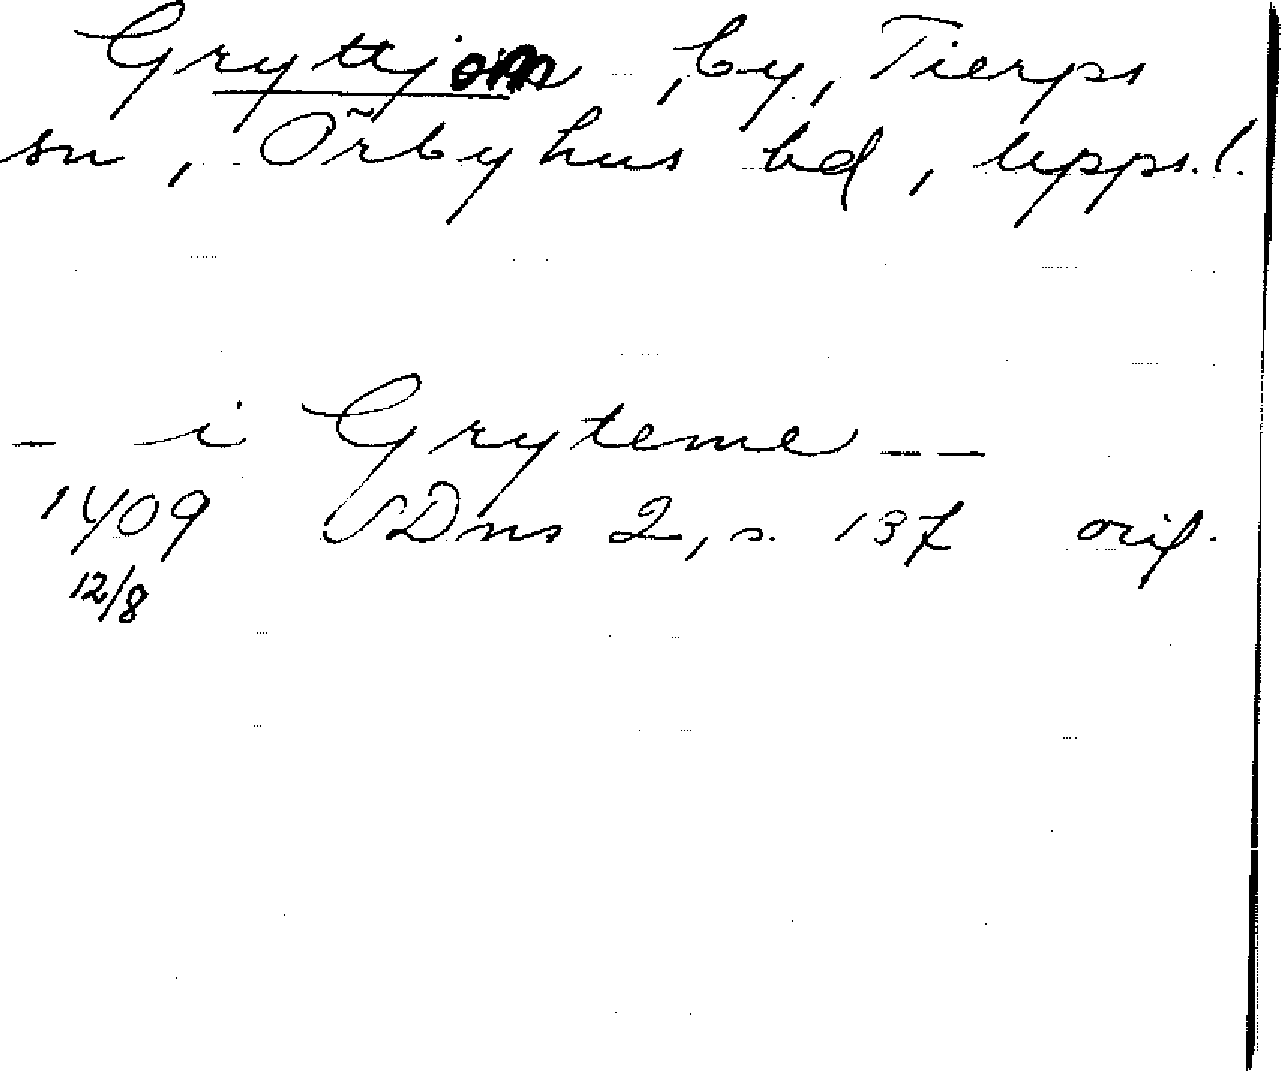 Gryttjom, by, Tierps
sn, Örbyhus hd, Upps.l.
- i Gryteme --
1409 SDns 2, s. 137 orig.
12/8